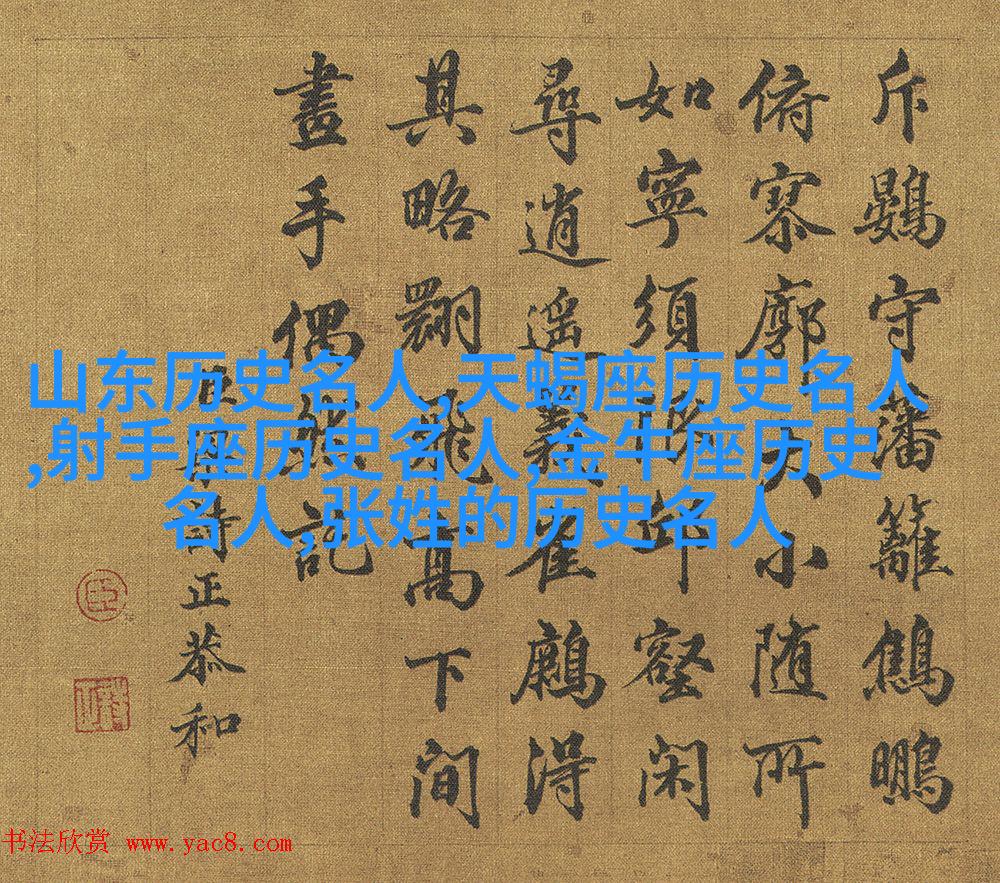 斥鷃守藩籬鷦鵬
俯寥廓大小随所
如寧須壑閑
尋逍遥義得
其略翾飛高下間
畫手偶記
臣正恭和
山东历史名人,天蝎座历史名人
,射手座历史名人,金牛座历史
名人,张姓的历史名人
书法欣赏 www.yac8.com